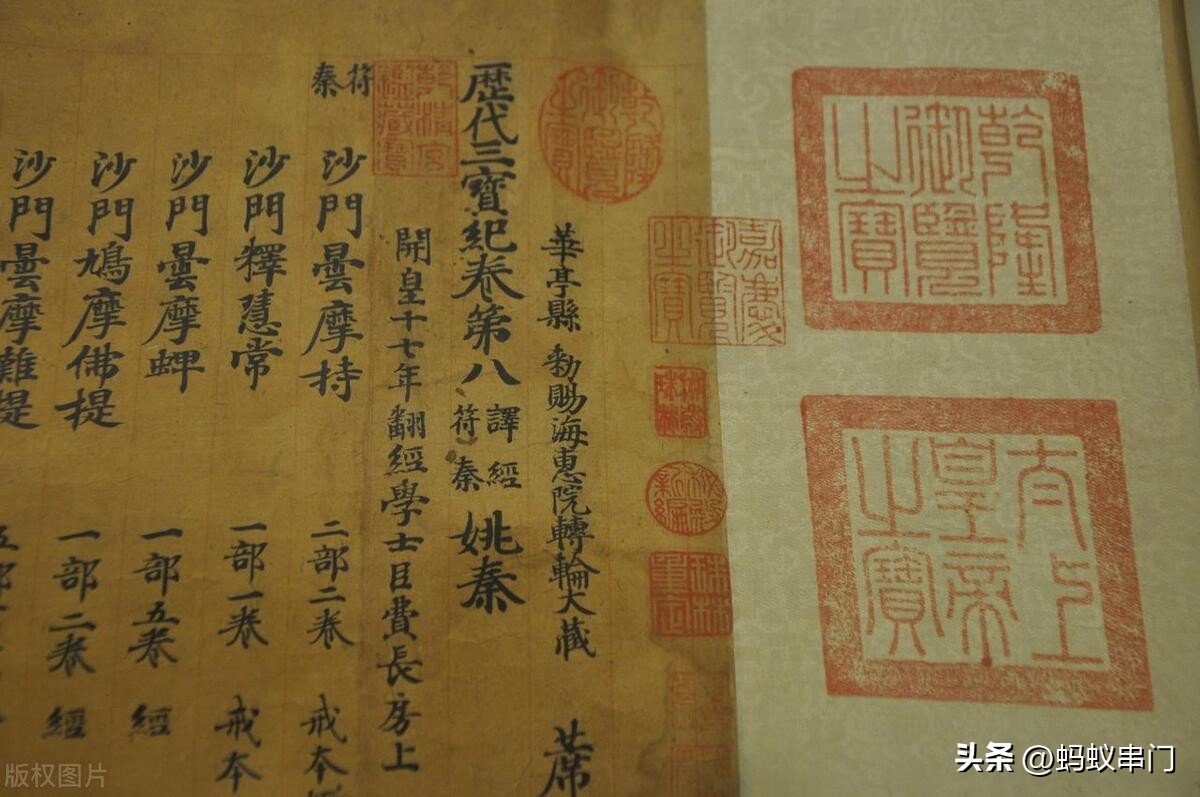 乾隆御覽之寶
太上皇帝之寶
嘉慶御覽之寶
乾隆御覽之寶
秘殿珠林
秘殿新編
珠林重定
華亭縣 勑賜海惠院轉輪大藏 蓆
歷代三寶紀卷第八 譯經 符秦 姚秦
乾清宮鑒藏寶
開皇十七年翻經學士臣費長房上
符秦
沙門曇摩持 二部二卷 戒本
沙門釋慧常 一部一卷 戒本
沙門曇摩蜱 一部五卷 經
沙門鳩摩佛提 一部二卷 經
沙門曇摩難提 五部
版权图片
头条 @蚂蚁串门